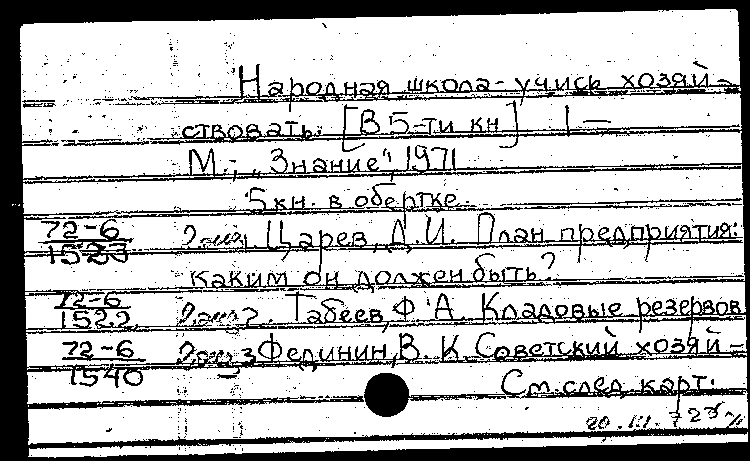 Народная школа-учись хозяй-
ствовать. [В 5-ти кн] 1 —
М., "Знание", 1971
5 кн. в обертке.
72-6 2 экз 1. Царев, Д.И. План предприятия:
1523
каким он должен быть?
72-6 2 экз 2. Табеев, Ф.А. Кладовые резервов
1522
72-6 2 экз 3. Фединин, В.К. Советский хозяй-
1540
См. след. карт.
20.III.72